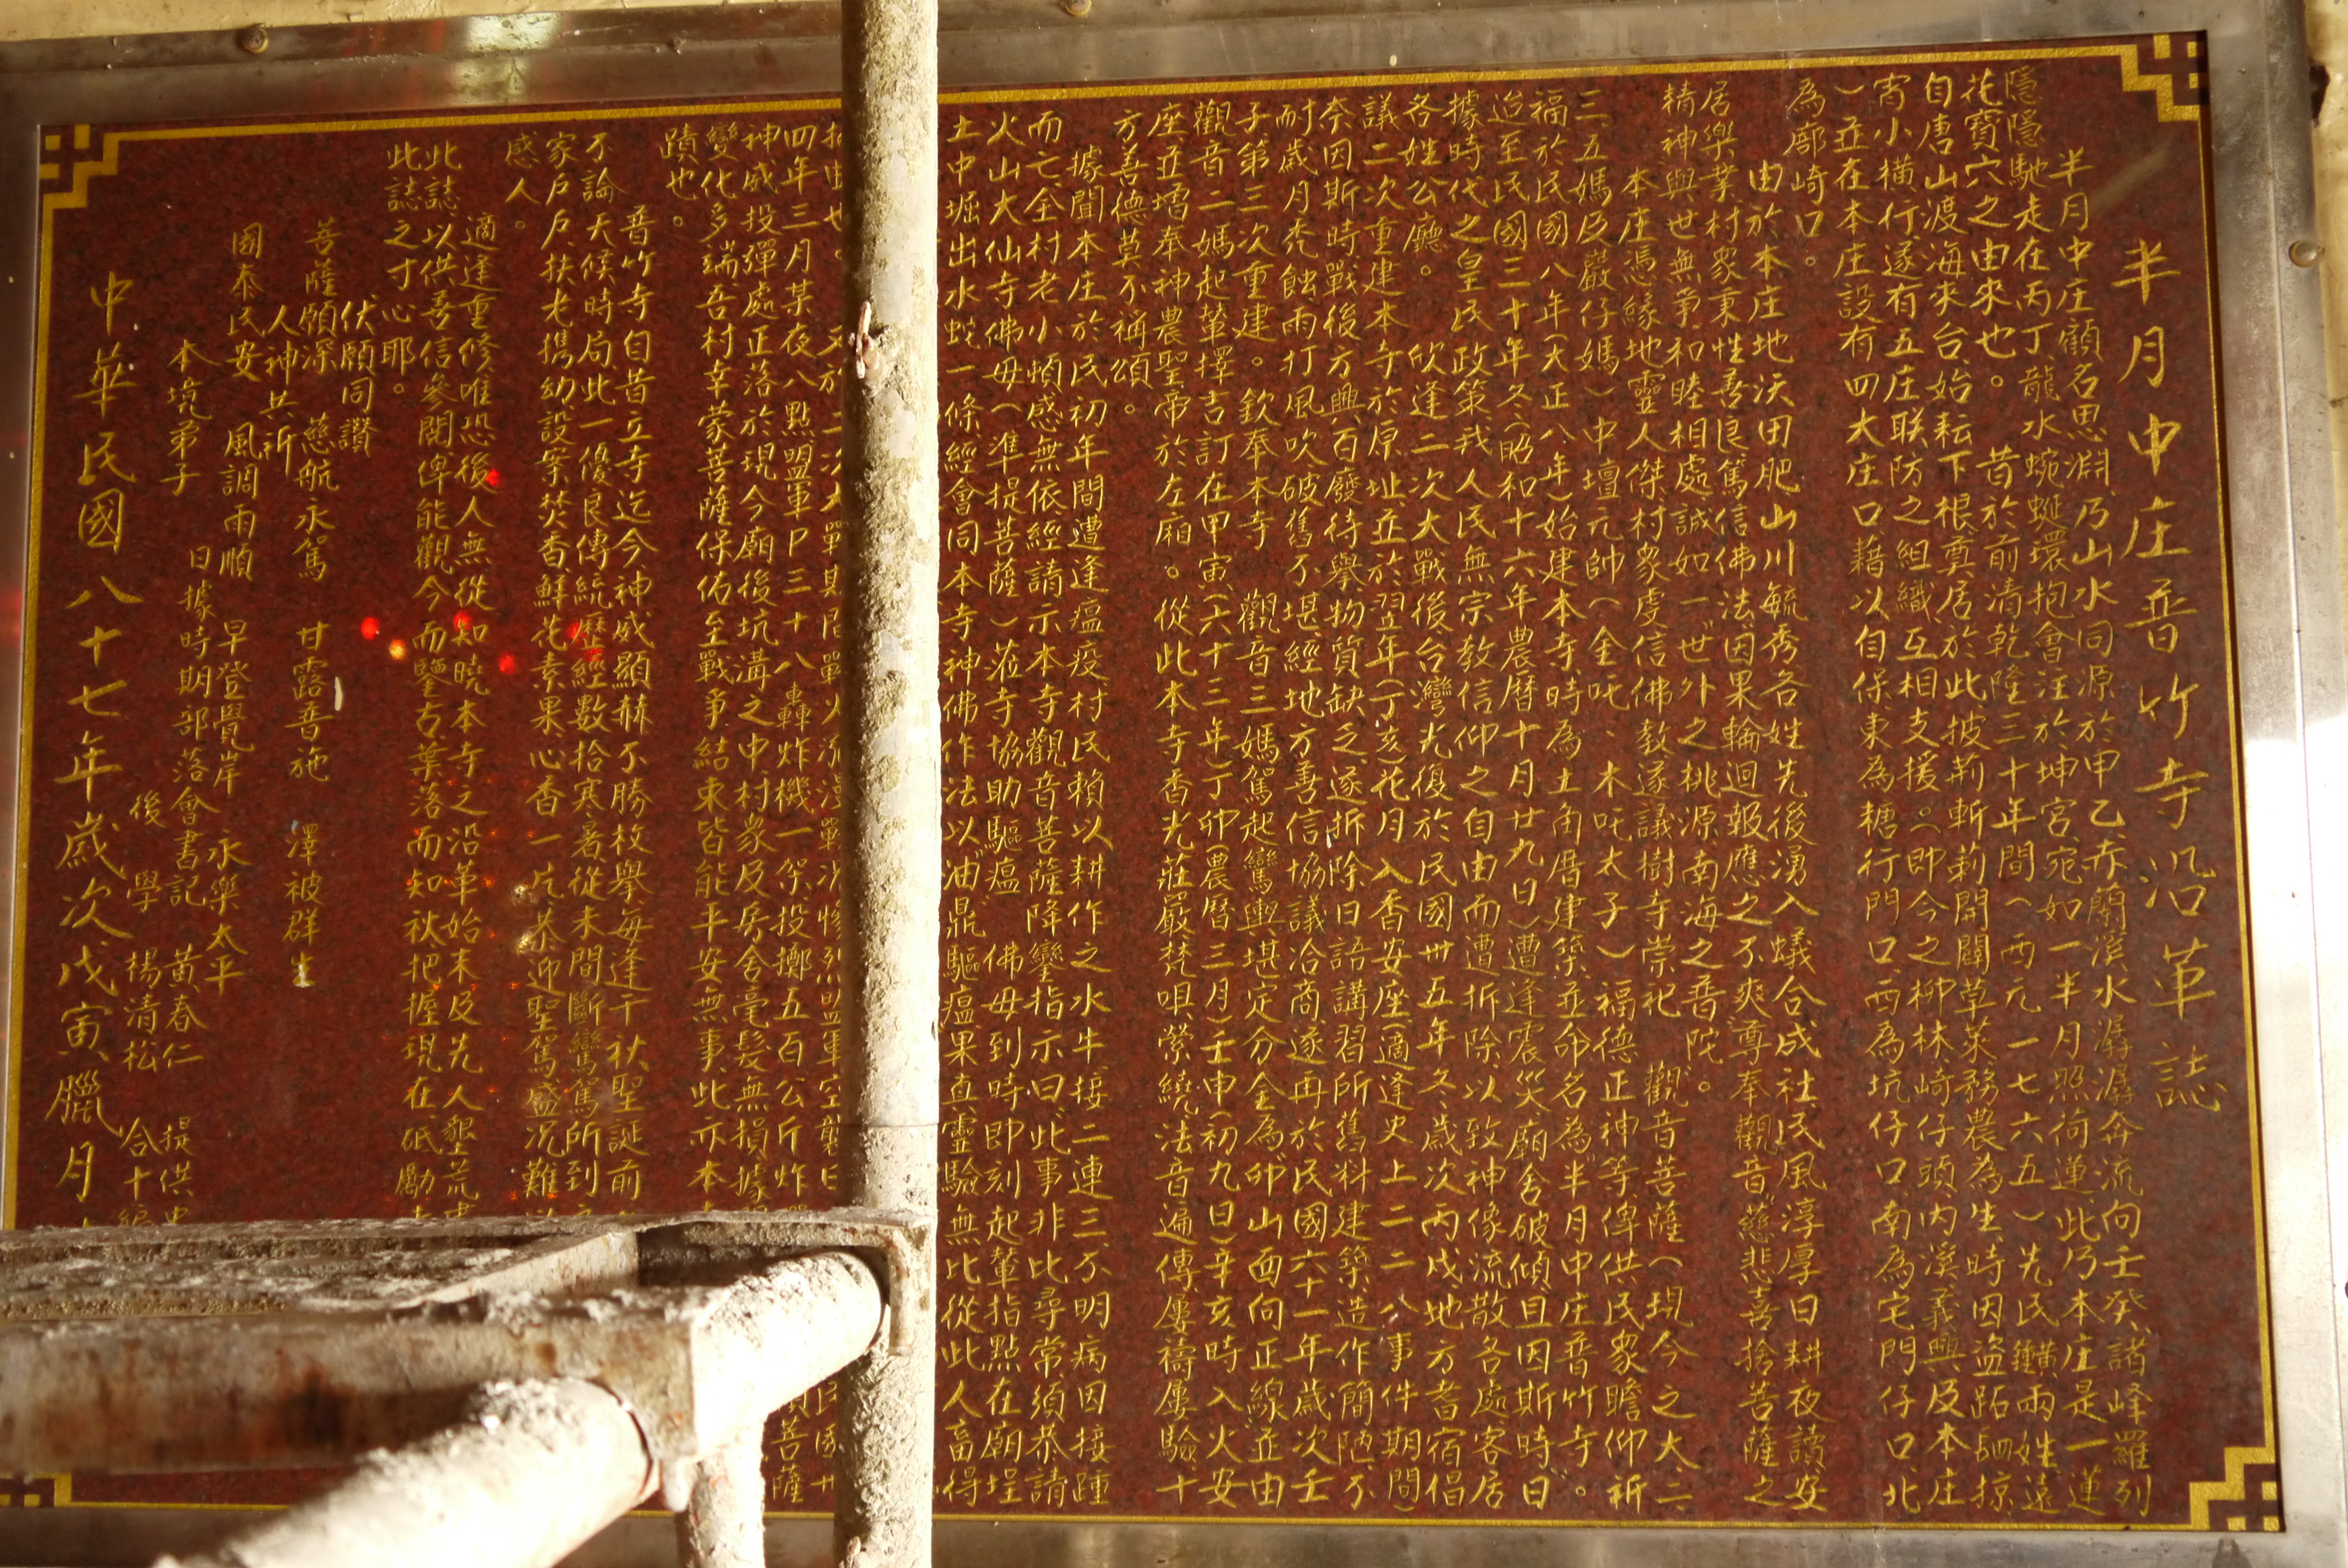 半月中庄普竹寺沿革誌
半月中庄顧名思淵、乃山水同源於甲乙、赤蘭溪水潺潺奔流向壬癸、諸峰羅列
隱隱馳走在丙丁、龍水蜿蜒環抱會注於坤宮、宛如一半月照荷蓮、此乃本庄是一蓮
花寶穴之由來也。 昔於前清乾隆三十年間（西元一七六五）先民 兩姓、遠
自唐山渡海來台、始耘下根尊居於此、披荊斬莉、開闢草萊、務農為生、時因盜跖 掠、
宵小橫行、遂有五庄联防之組織、互相支援。（即今之柳林、崎仔頭、內溪、義興、及本庄
）並在本庄設有四大庄口、藉以自保、東為糖行門口、西為坑仔口、南為宅門仔口、北
為廍崎口。
由於本庄地沃田肥、山川毓秀、各姓先後湧入、蟻合成社、民風淳厚、日耕夜讀、安
居樂業、村眾秉性善良、篤信佛法因果輪迴報應之不爽、尊奉觀音"慈悲喜捨菩薩之
精神、與世無爭、和睦相處、誠如一"世外之桃源、南海之普陀"。
本庄憑緣地靈人傑、村眾虔信佛教、遂議樹寺崇祀 觀音菩薩（現今之大、二、
三、五媽及嚴仔媽）中壇元帥（金吒、木吒太子）福德正神等、俾供民眾瞻仰祈
福、於民國八年（大正八年）始建本寺、時為土角厝建築、並命名為"半月中庄普竹寺"。
迨至民國三十年冬（昭和十六年農曆十月廿九日）遭逢震災、廟舍破傾、且因斯時日
據時代之皇民政策、我人民無宗教信仰之自由、而遭折除、以致神像流散各處、客居
各姓公廳。 欣逢二次大戰後、台灣光復、於民國卅五年冬、歲次丙戌、地方耆宿倡
議二次重建本寺於原址、並於翌年（丁亥）花月入香安座（適逢史上二二八事件期間
奈因斯時戰後、方興百廢待舉、物質缺乏、遂折除日語講習所舊料建築、造作簡陋、不
耐歲月禿蝕、雨打風吹、破舊不堪、經地方善信協議洽商、遂再於民國六十一年歲次壬
子第三次重建。欽奉本寺 觀音三媽駕起鸞輿、堪定分金為"卯"山面向正線、並由
觀音二媽起輦、擇吉訂在甲寅（六十三年）丁卯（農曆三月）壬申（初九日）辛亥時、入火安
座、並增奉神農聖帝於左廂。從此本寺香光莊嚴、梵唄縈繞、法音遍傳、屢禱屢驗、十
方善德莫不稱頌。
據聞本庄於民初年間、遭逢瘟疫、村民賴以耕作之水牛、接二連三、不明病因、接踵
而亡、全村老小頓感無依、經請示本寺觀音菩薩降鑾指示曰、此事非比尋常、須恭請
火山大仙寺佛母（準提菩薩）蒞寺協助驅瘟、佛母到時、即刻起輦指點、在廟埕
土中堀出水蛙一條、經會同本寺神佛作法、以"油"鼎驅瘟、果真靈驗無比、從此人畜得
四年三月某夜八點、盟軍Ｐ三十八轟炸機一架、投擲五百公斤炸
神威、投彈處正落於現今廟後坑溝之中、村眾及房舍毫髮無損、據
變化多端、吾村幸蒙菩薩保佑、至戰爭結束、皆能平安無事、此亦本
蹟也。
普竹寺自昔立寺迄今、神威顯赫、不勝枚舉、每逢千秋聖誕前
不論天候、時局、此一優良傳統、歷經數拾寒暑、從未間斷、鸞駕所到
家戶戶、扶老攜幼、設案焚香、鮮花素果、心香一片、恭迎聖駕、盛況難以
感人。
適逢重修、唯恐後人無從知曉本寺之沿革始末、及先人墾荒
此誌、以供善信參閱、俾能觀今而鑒古、葉落而知秋、把握現在、砥勵
此誌之寸心耶。
伏願同讚
菩薩願深 慈航永駕 甘露普施 澤被群生
人神共祈
國泰民安 風調雨順 早登覺岸 永樂太平
本境弟子 日據時期部落會書記 黃春仁 提供
後 學 楊清松 合十
中華民國八十七年歲次戊寅臘月